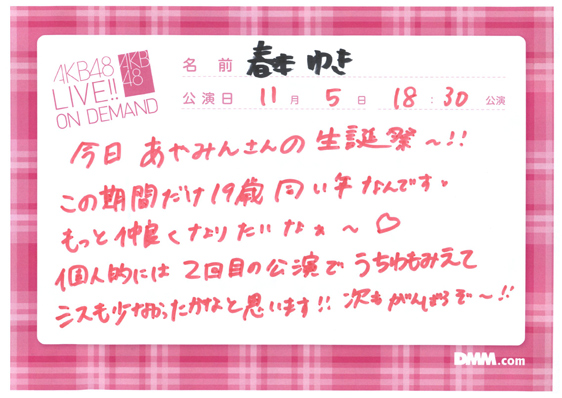 AKB48
LIVE!!
ON DEMAND
AKB
48
名 前 春本 ゆき
公演日 11月 5日 18:30 公演
今日 あやみんさんの 生誕祭〜!!
この期間だけ19歳 同い年なんです。
もっと仲良くなりたいなぁ〜♡
個人的には 2回目の公演で うちわもみえて
ミスも少なかったかなと思います!! 次もがんばるぞ〜!!
DMM.com